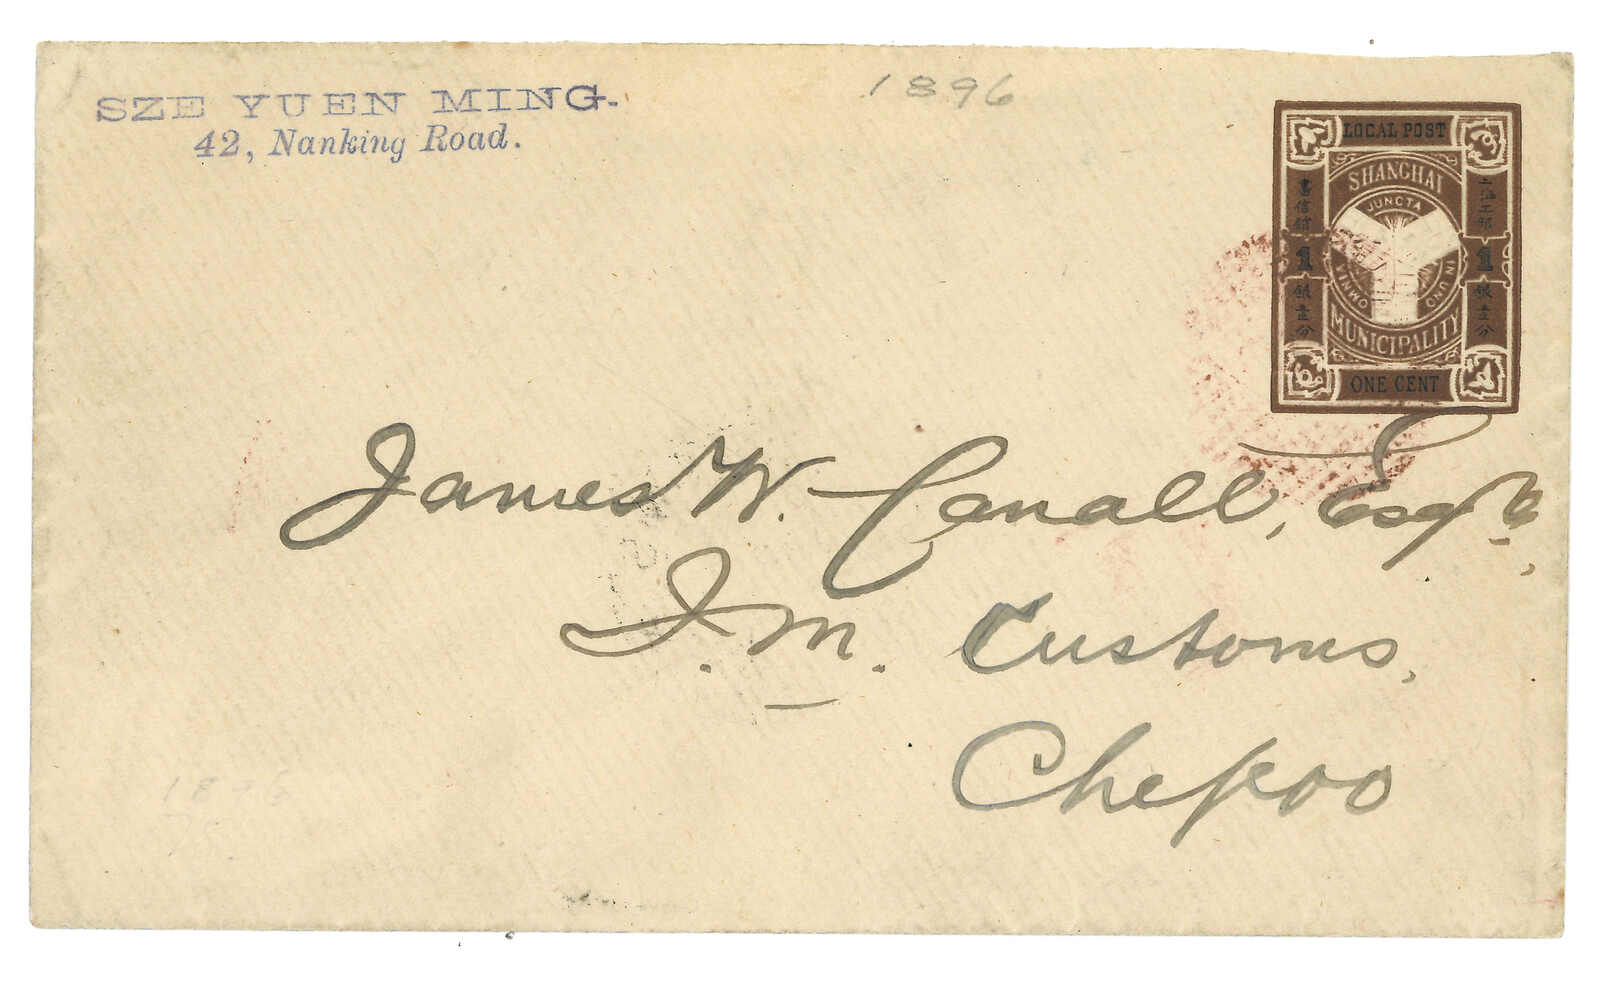 SZE YUEN MING.
42, Nanking Road.
1896
LOCAL POST
SHANGHAI
JUNCTA
IN UNO
OMNIA
MUNICIPALITY
書信館
1
銀壹分
上海工部
1
銀壹分
ONE CENT
James W. Canall, Esqre,
I. M. Customs,
Chepoo